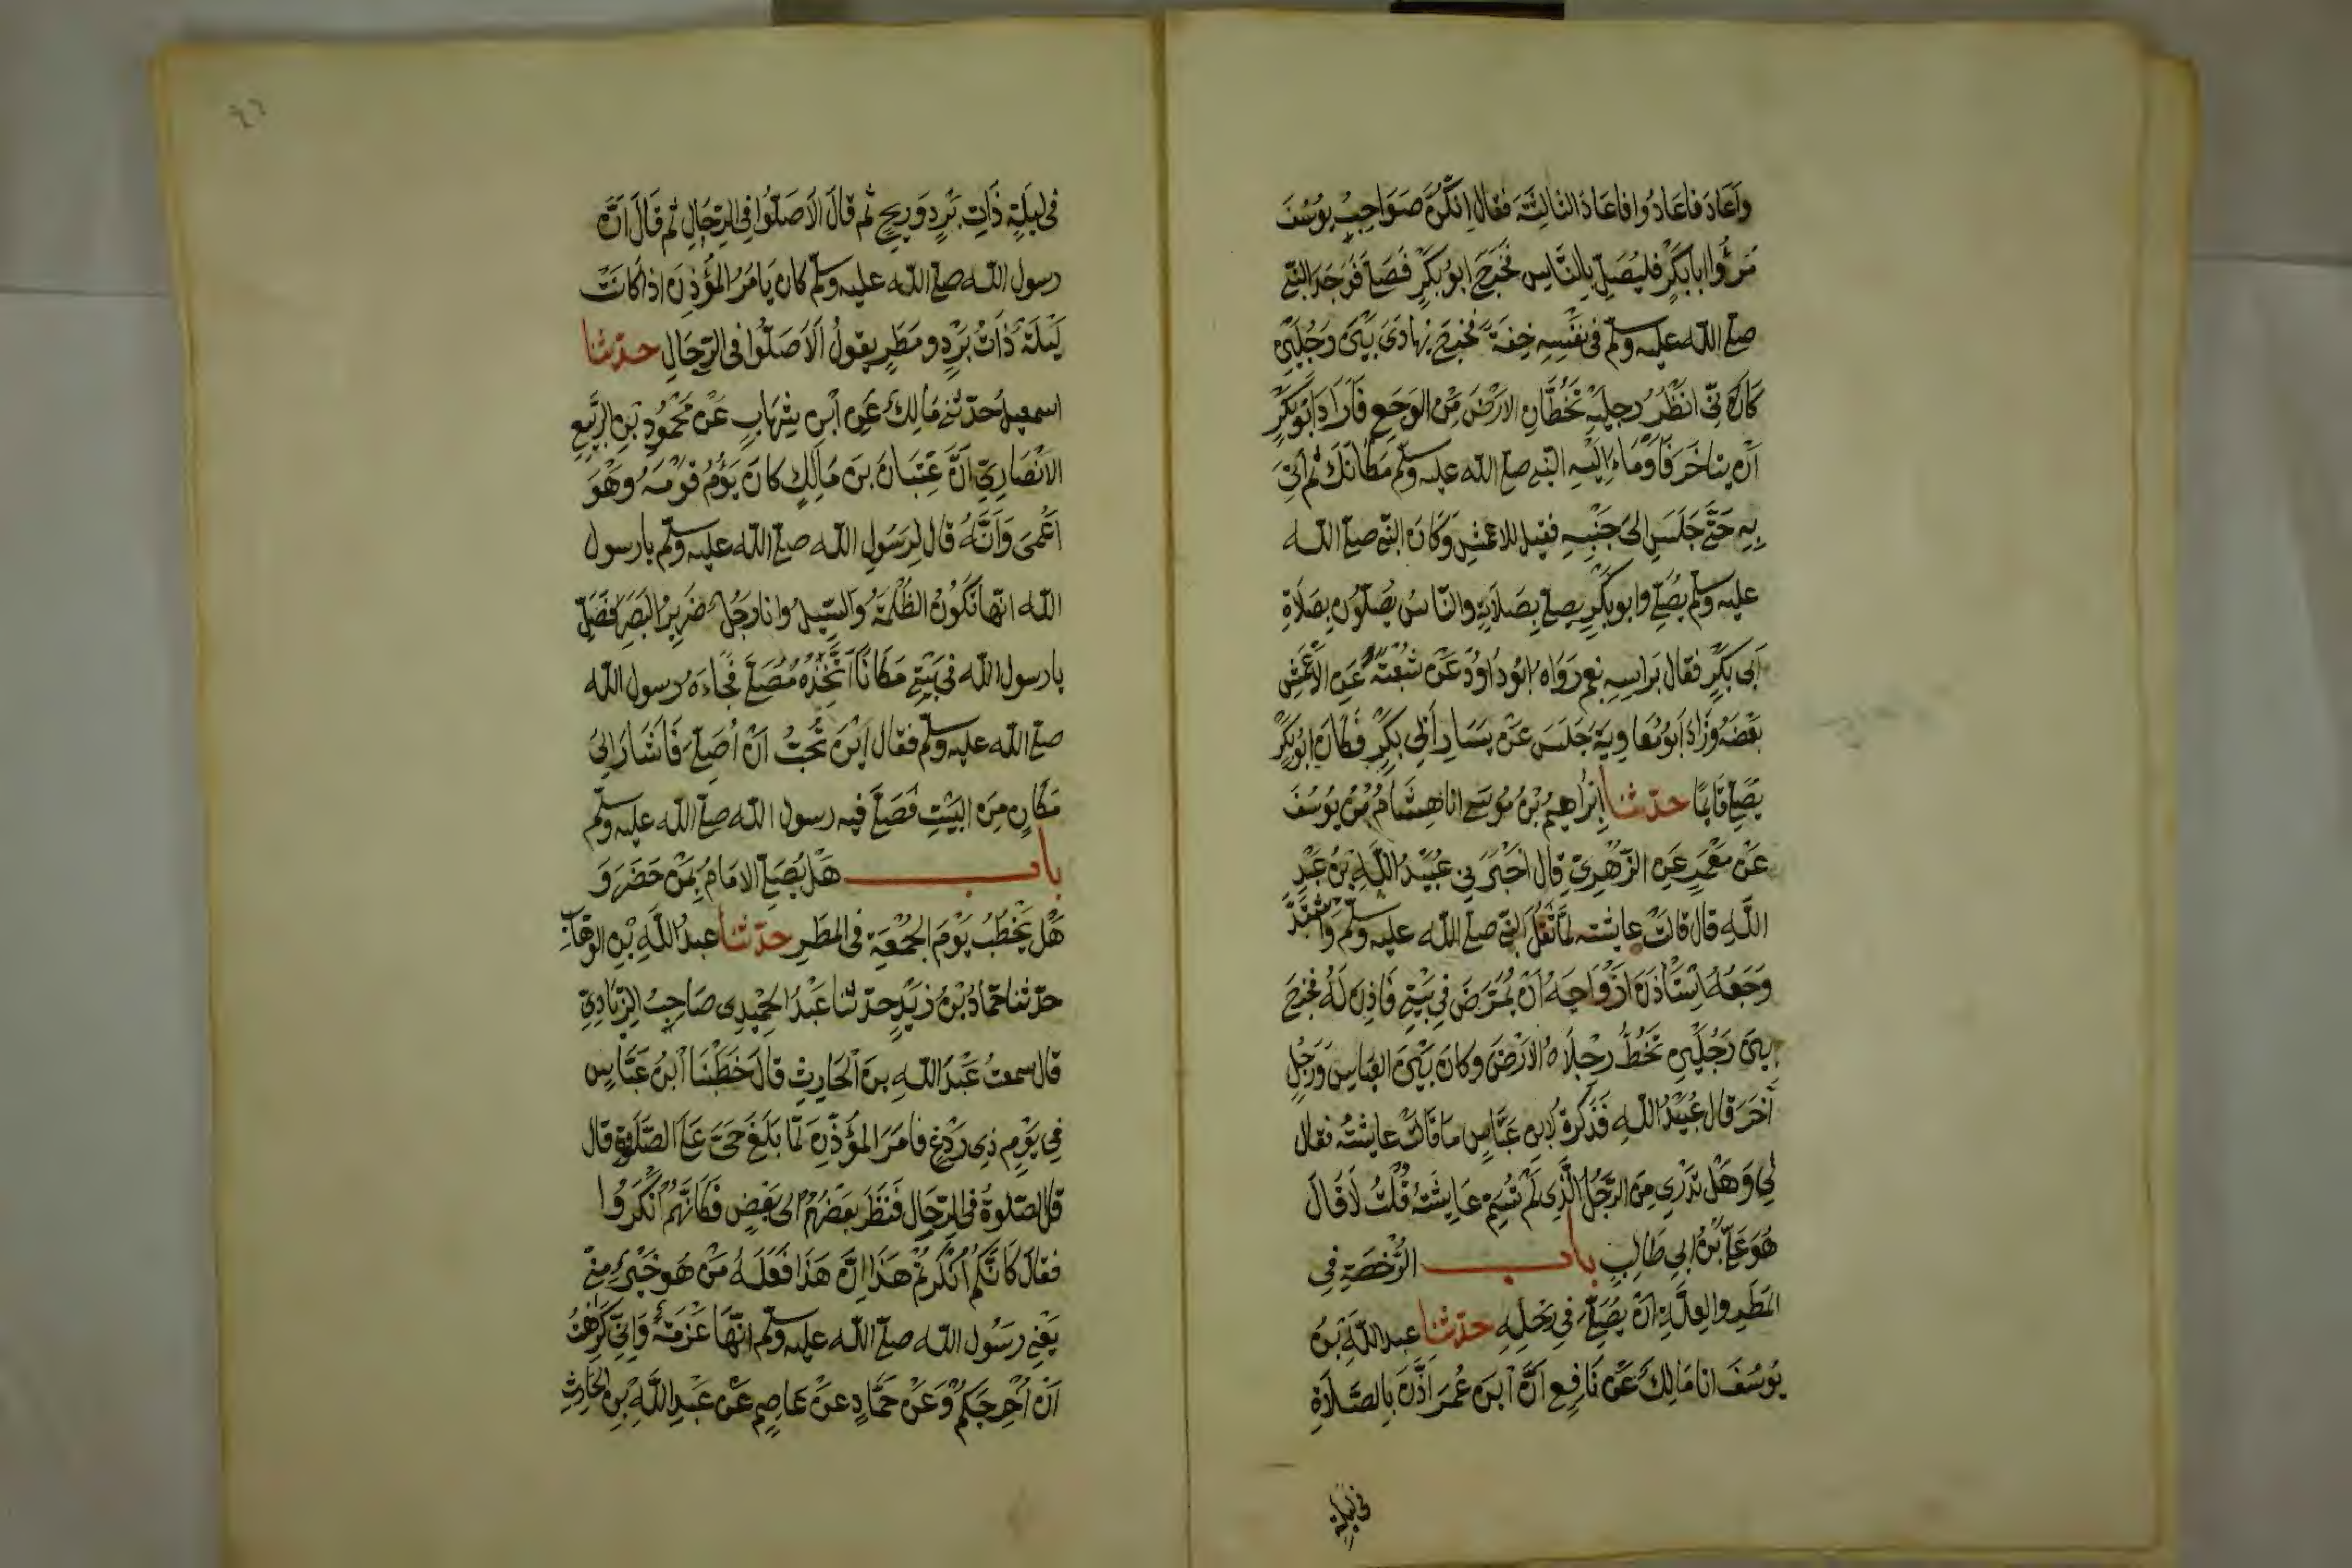 واَعَادَ فاَعَادُوا فاعَادَ الثالِثَةَ فقال اِنكُنَّ صَوَاحِبُ يُوسُفَ
مُرُوا ابا بَكْرٍ فليُصَلِّ بِالنَّاسِ فخَرَجَ ابُو بَكرٍ فَصَلّى فَوَجَدَ النبى
صلى الله عليه وسلم فى نفْسِهِ خِفَّةً فخرجَ يُهادَى بَيْنَ رَجُلَيْنِ
كَاَنِّى انظُرُ رِجلَيْهِ تَخُطَّانِ الارْضَ مِنَ الوَجَعِ فَاَرَادَ ابُو بَكرٍ
اَن يتاخَرَ فَاَوْمَاء اِلَيْهِ النبى صلى الله عليه وسلم مَكانَكَ ثم اُتِىَ
بِهِ حَتّى جَلَسَ الى جَنْبِهِ فقيل للاعمَشِ وَكَانَ النبى صلى الله
عليه وسلم يُصَلّى وابو بكرٍ يصلى بِصَلَاتِهِ والنّاسُ يُصَلُّونَ بِصَلَاةِ
اَبى بَكرٍ فقال بَراسِهِ نعم رَوَاه ابُو دَاوُدَ عَنْ شُعْبَةَ عَنِ الاَعْمَشِ
بَعْضَهُ وَزَادَ اَبُو مُعَاوِيَةَ جَلَسَ عَنْ يَسَارِ اَبى بَكرٍ فَكانَ ابُو بَكْرٍ
يُصَلِّى قَائِمًا حدّثنا اِبْرَاهِيمُ بْنُ مُوسَى انا هِشَامُ بْنُ يُوسُفَ
عَنْ مَعْمَرٍ عَنِ الزُّهْرِىِّ قال اَخْبَرَنِى عُبَيْدُ اللَّهِ بْنُ عَبْدِ
اللَّهِ قال قالت عايشه لَمَّا ثَقُلَ النبى صلى الله عليه وسلم وَاشتَدَّ
وَجَعُهُ اسْتَاْذَنَ ازْوَاجَهُ اَنْ يُمَرَّضَ فِى بَيْتِى فَاَذِنَّ لَهُ فخرج
بَيْنَ رَجُلَيْنِ تَخُطُّ رِجْلَاهُ الارْضَ وكانَ بَيْنَ العباسِ وَرَجُلٍ
آخَرَ قال عُبَيْدُ اللّهِ فَذَكَرْتُ لابنِ عَبَّاسٍ مَا قالَتْ عايشةُ فقال
لِى وَهَلْ تَدْرِى مَنِ الرَّجُلُ الَّذِى لَمْ تُسَمِّ عَايشَةُ قُلْتُ لَا قَالَ
هُوَ عَلِىُّ بْنُ ابِى طَالِبٍ باب الرُّخصَةِ فِى
المَطَرِ والعِلَّةِ انْ يُصَلِّىَ فِى رَحْلِهِ حدّثنا عبد اللَّهِ بْنُ
يُوسُفَ انا مَالِكٌ عَنْ نَافِعٍ اَنَّ ابنَ عُمَرَ اَذَّنَ بِالصَّلَاةِ
فى ليلة
فى ليلَةٍ ذَاتِ بَرْدٍ وَرِيحٍ ثم قالَ اَلَا صَلّوا فِى الرِّحَالِ ثم قَالَ اَنَّ
رسول الله صلى الله عليه وسلم كان يَامُرُ المُؤَذِّنَ اذا كانَتْ
لَيْلَةٌ ذَاتُ بَرْدٍ ومَطَرٍ يقولُ اَلَا صَلُّوا فى الرِّحَالِ حدّثنا
اسمعيلُ حدّثنى مَالِكٌ عَنِ ابْنِ شِهَابٍ عَنْ مَحْمُودِ بْنِ الرَّبِيعِ
الاَنْصَارِىِّ اَنَّ عِتْبَانَ بنَ مَالِكٍ كانَ يَؤُمُّ قوْمَهُ وهُوَ
اَعْمَى وَاَنَّهُ قال لِرَسُولِ الله صلى الله عليه وسلم يا رسول
الله انّها تَكُونُ الظُلْمَةُ وَالسَّيلُ وانا رَجُلٌ ضَرِيرُ البَصَرِ فَصَلِّ
يا رسول الله فى بَيْتِى مَكَانًا اَتَّخِذُهُ مُصَلّى فجَاءَهُ رسول الله
صلى الله عليه وسلم فقال اَيْنَ تُحِبُّ اَنْ اُصَلِّىَ فَاَشَارَ اِلى
مَكانٍ مِنَ البَيْتِ فَصَلّى فيه رسول الله صلى الله عليه وسلم
باب هَلْ يُصَلِّى الامَامُ بِمَنْ حَضَرَ وَ
هَلْ يَخْطُبُ يَوْمَ الجُمُعَةِ فى المَطَرِ حدّثنا عبدُ اللَّهِ بْنِ الوهّابِ
حدّثنا حمّادُ بْنُ زَيْدٍ حدّثنا عَبْدُ الحَمِيدِى صَاحِبُ الزِّيَادِىِّ
قال سمعتُ عَبْدَ اللهِ بنَ الحَارِثِ قالَ خَطَبْنَا ابْنُ عَبَّاسٍ
فِى يَوْمٍ ذِى رَدْغٍ فَاَمَرَ المُؤَذّنَ لَمّا بَلَغَ حَىَّ عَلَى الصَّلَوةِ قال
قلِ الصّلوةُ فى الرِّحَالِ فَنَظَرَ بَعْضُهُمْ الى بَعْضٍ فَكَانَّهُمْ اَنْكَرُوا
فقالَ كَانَّكُمْ اَنْكَرْتُمْ هَذَا اِنَّ هَذَا فَعَلَهُ مَنْ هُوَ خَيْرٌ مِنّى
يَعْنِى رَسُول الله صلى الله عليه وسلم اِنّهَا عَزْمَةٌ وَاِنِّى كَرِهْتُ
اَنْ اُحْرِجَكُمْ وَعَنْ حَمَّادٍ عَنْ عَاصِمٍ عَنْ عَبْدِ اللَّهِ بْنِ الحَارِثِ